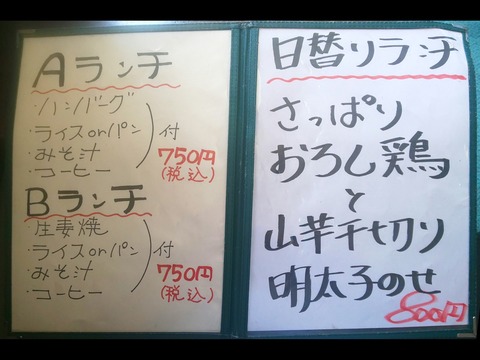 Aランチ
・ハンバーグ
・ライスorパン
・みそ汁
・コーヒー
付
750円
(税込)
Bランチ
・生姜焼
・ライスorパン
・みそ汁
・コーヒー
付
750円
(税込)
日替りランチ
さっぱり
おろし鶏
と
山芋千切り
明太子のせ
800円